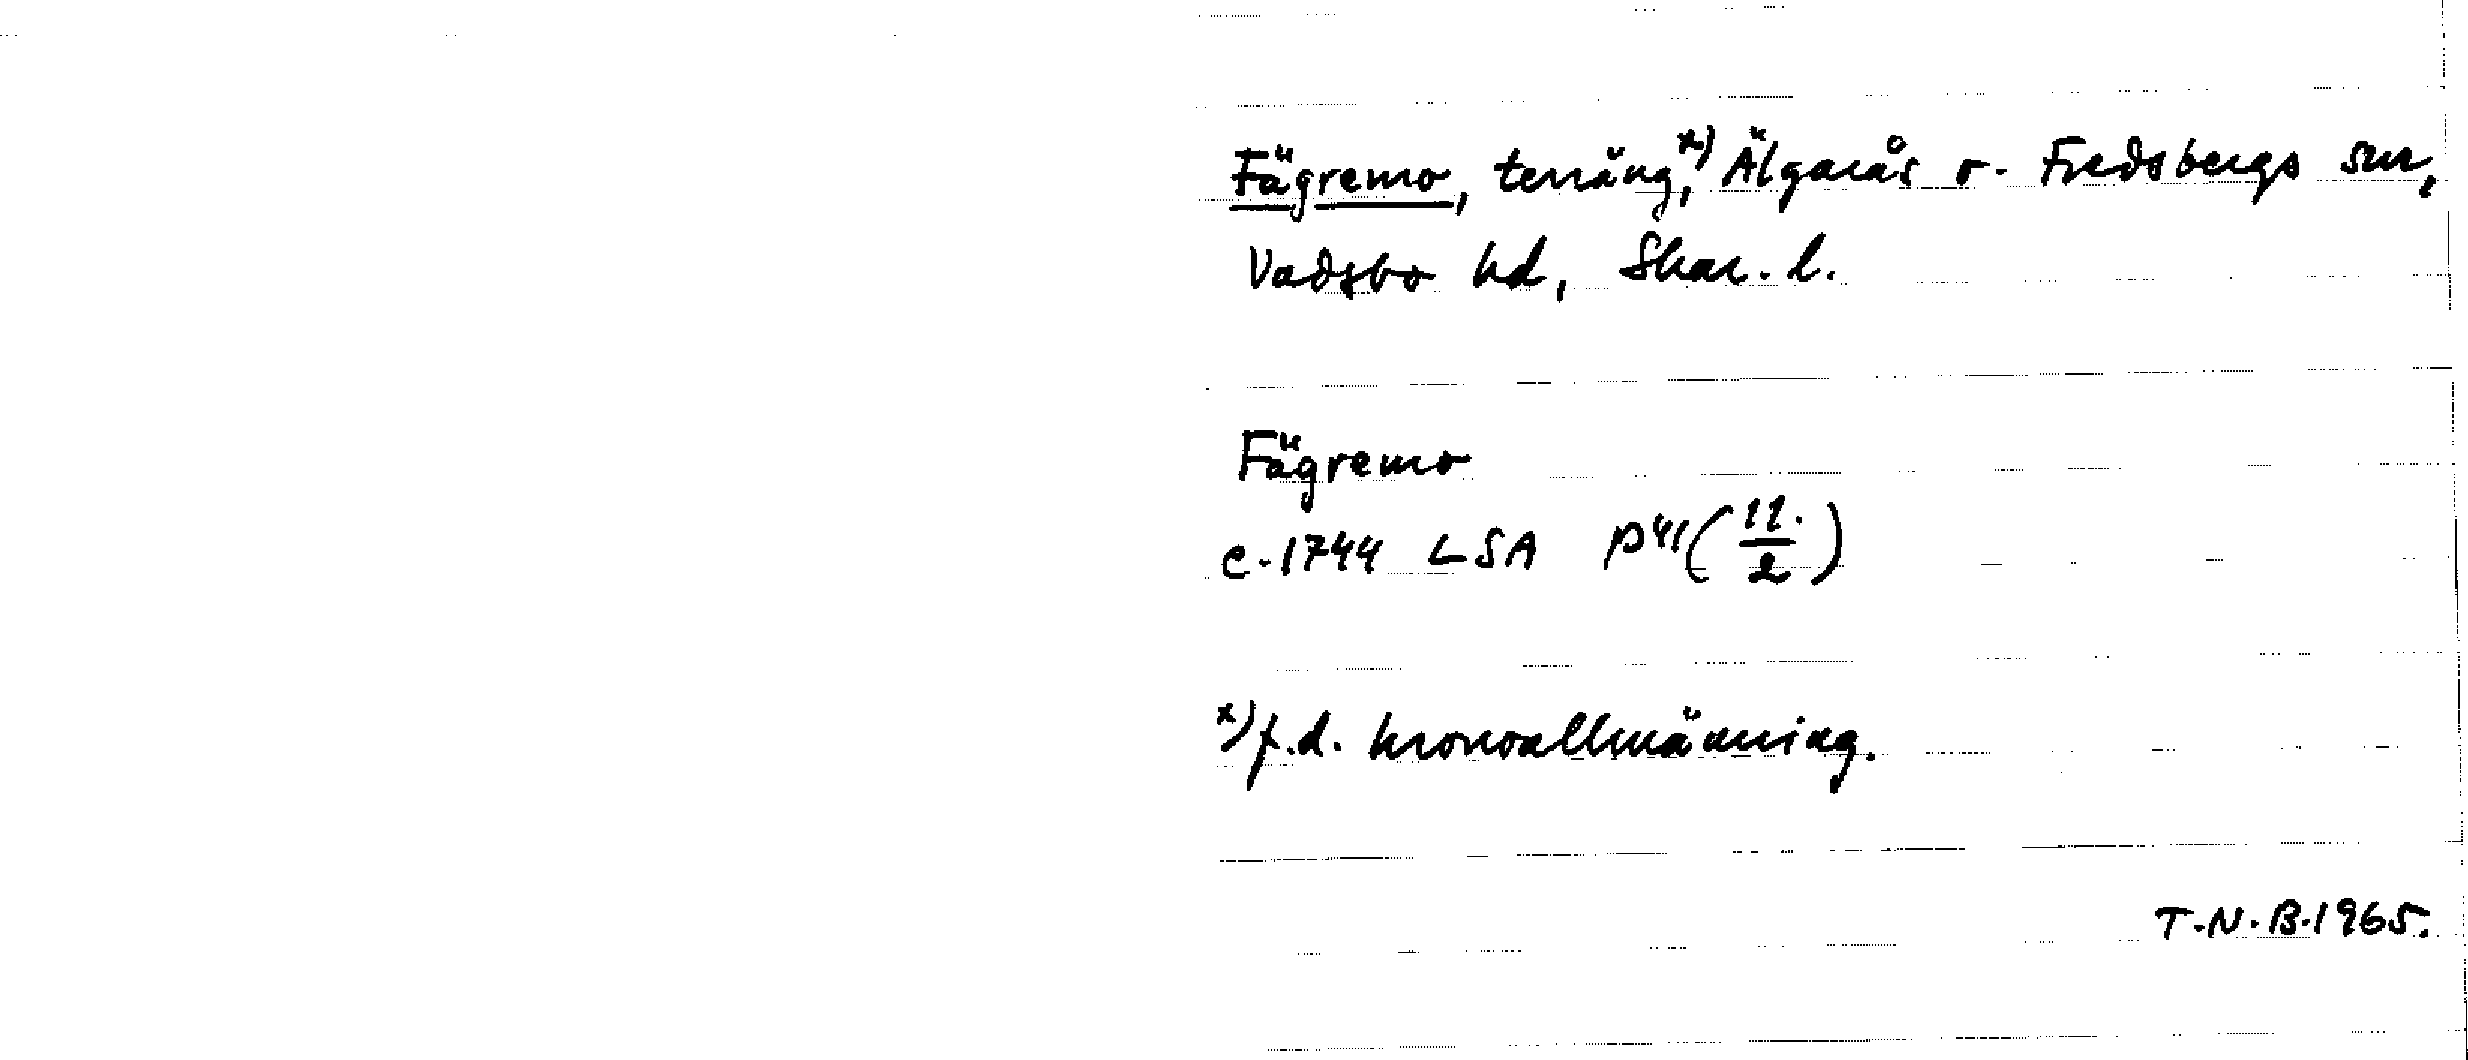 Fägremo, terräng,ˣ⁾ Älgarås o. Fredsbergs snr,
Vadsbo hd, Skar. l.
Fägremo
c. 1744 LSA P41 (11./2)
x) f.d. kronoallmänning.
T.N.B. 1965.